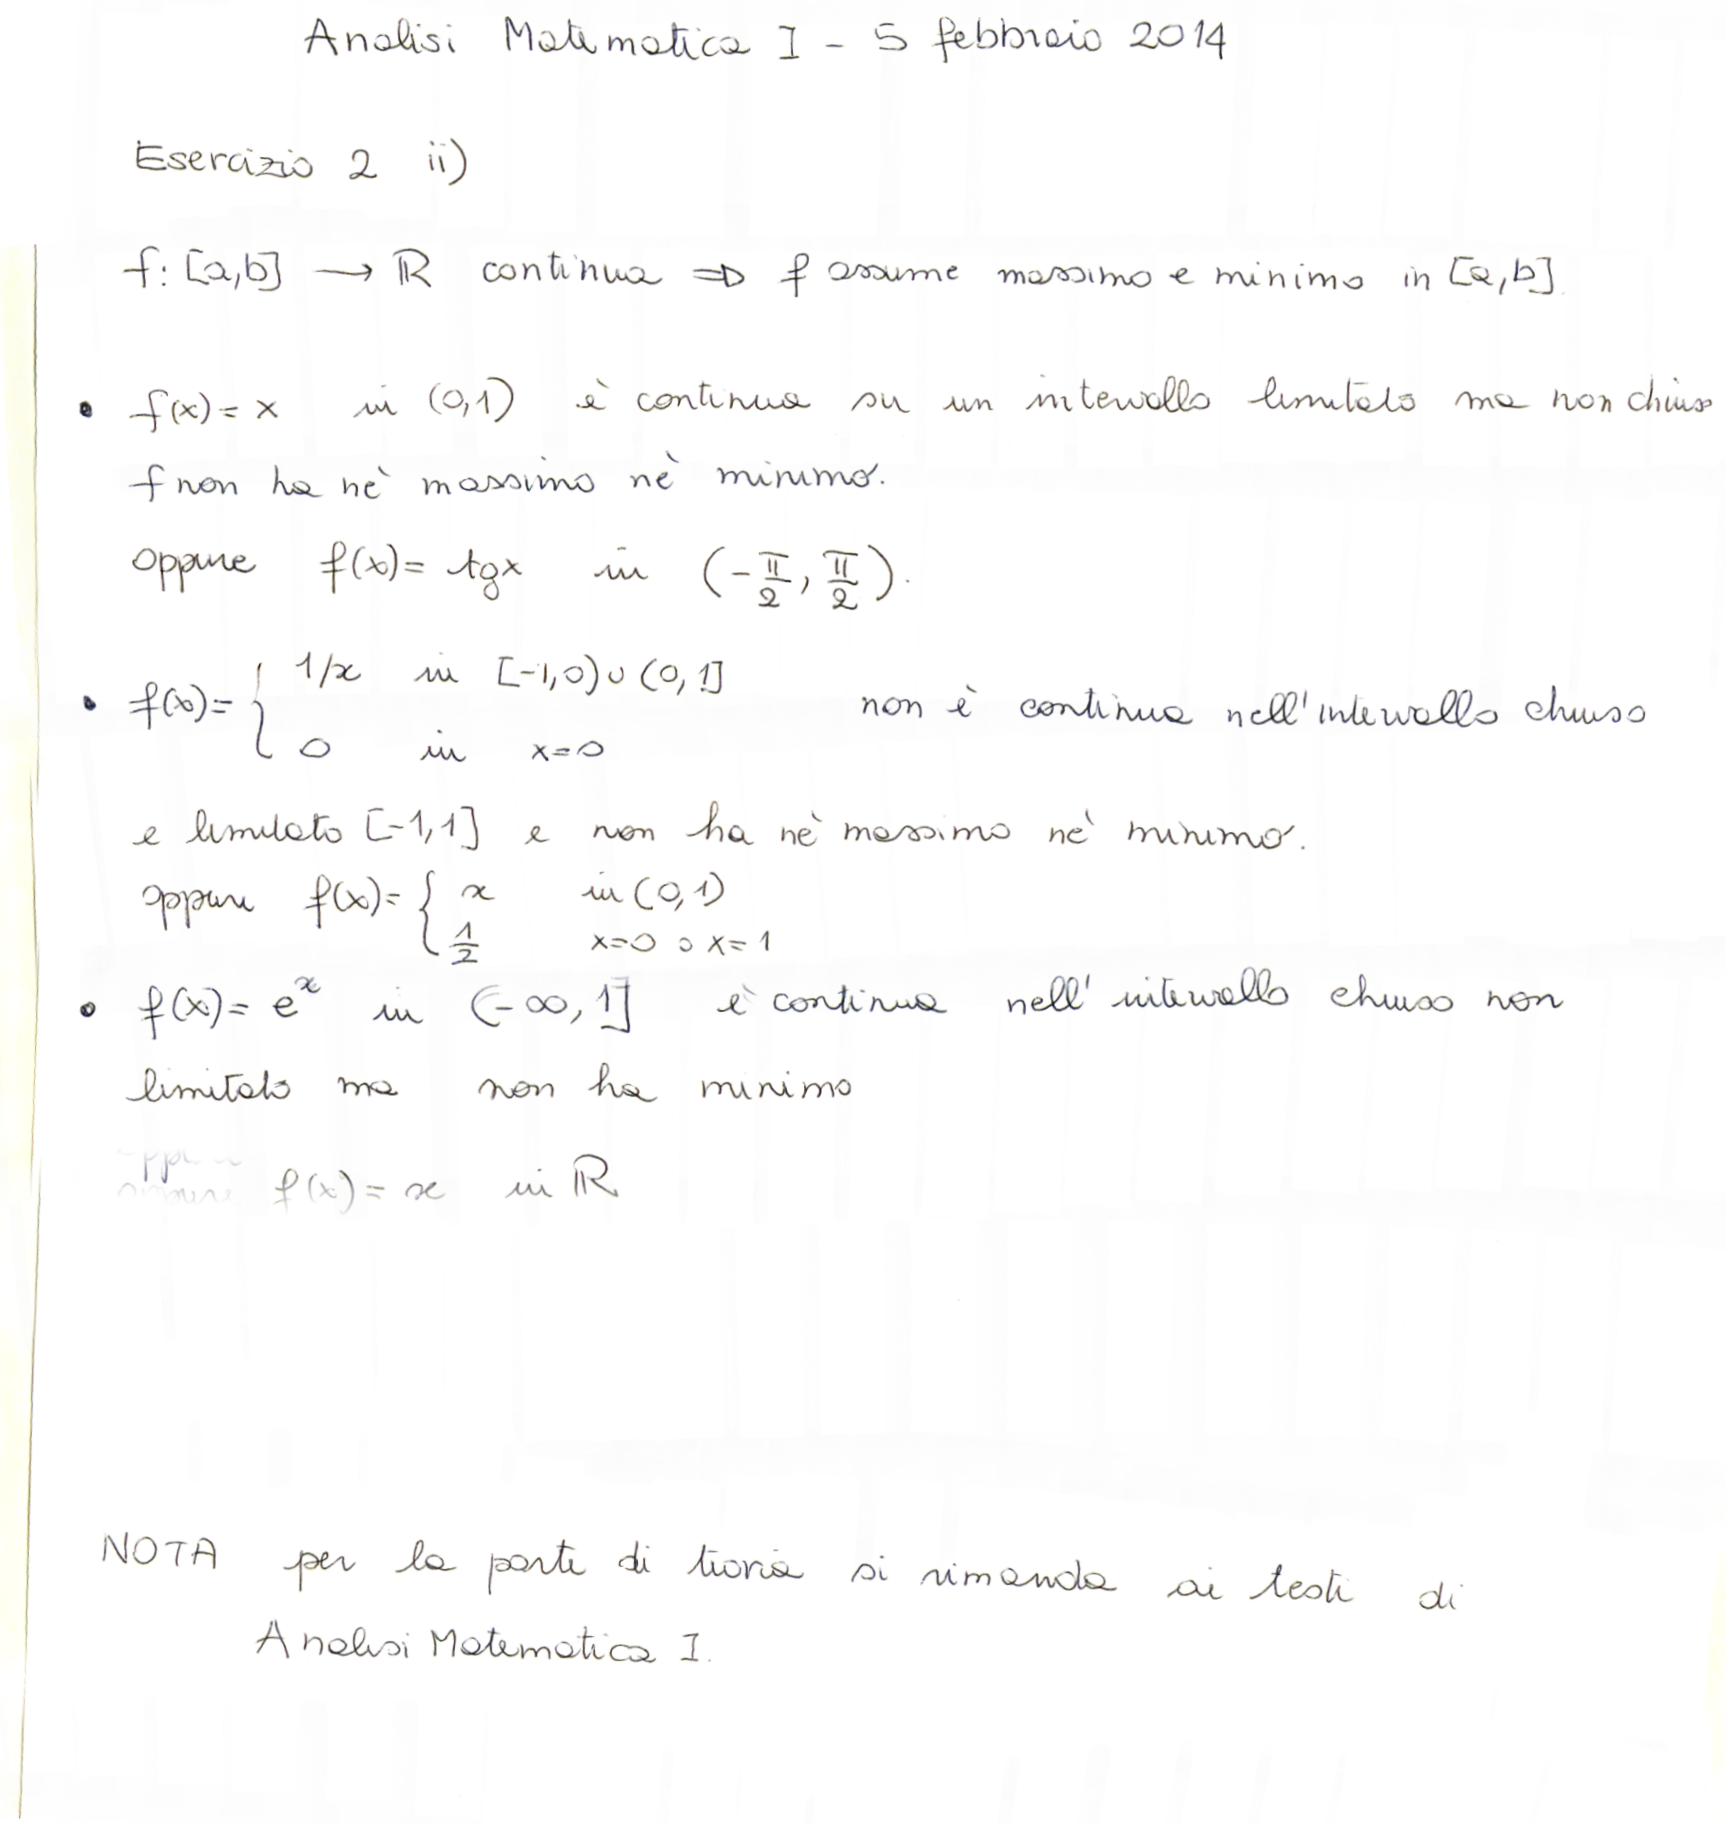 Analisi Matematica I - 5 febbraio 2014
Esercizio 2 ii)
f: [a,b] → ℝ continua ⇒ f assume massimo e minimo in [a,b].
• f(x) = x in (0,1) è continua su un intervallo limitato ma non chiuso
f non ha nè massimo nè minimo.
oppure f(x) = tgx in (-π/2, π/2).
• f(x) = { 1/x in [-1,0) ∪ (0,1]
0 in x=0
non è continua nell'intervallo chiuso
e limitato [-1,1] e non ha nè massimo nè minimo.
oppure f(x) = { x in (0,1)
1/2 x=0 o x=1
• f(x) = eˣ in (-∞, 1] è continua nell'intervallo chiuso non
limitato ma non ha minimo
oppure f(x) = x in ℝ
NOTA per la parte di teoria si rimanda ai testi di
Analisi Matematica I.